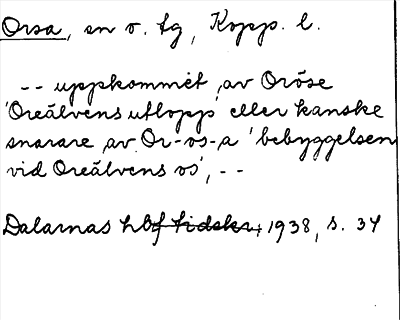 Orsa, sn o. tg, Kopp. l.
-- uppkommet av Oröse
'Oreälvens utlopp' eller kanske
snarare av Or-os-a 'bebyggelsen
vid Oreälvens os', --
Dalarnas hbf tidskr, 1938, s. 34